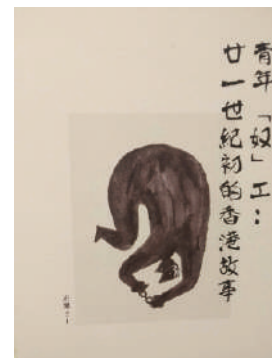 青年「奴」工：
廿一世紀初的香港故事